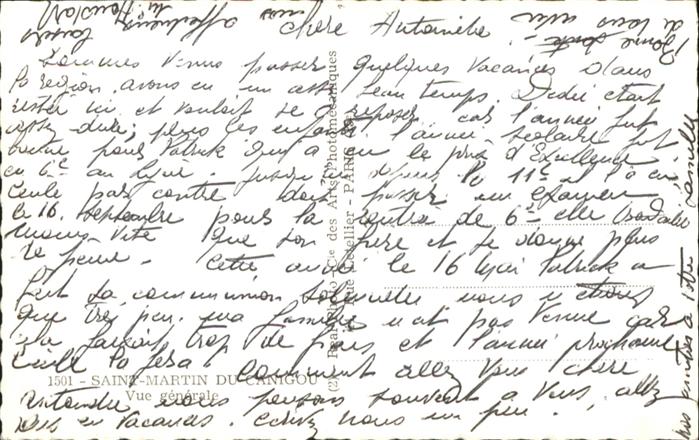 chère Antoinette
Sommes venus passer quelques vacances dans
la région, avons eu un assez beau temps. Dédé était
rester ici et voulait se reposer car l'année fut
assez dure, plus les enfants. l'année scolaire fut
bonne pour Patrick qui a eu le prix d'Excellence
en 6e au lycée. depuis la 11e il l'a eu
Cécile par contre doit passer un examen
le 16 septembre pour la rentrée de 6e elle
moins vite que son frère et se donne plus
de peine. Cette année le 16 Mai Patrick a
fait sa communion solennelle nous
que très peu. ma famille n'est pas venue car
ça faisait trop de frais et l'année prochaine
Cécile la fera. Comment allez vous chère
Antoinette, nous pensons souvent à vous, allez
vous en vacances. écrivez nous un peu.
1501 - SAINT-MARTIN DU CANIGOU
Vue générale
des Arts Photomécaniques
Letellier - PARIS
Bons
de nous